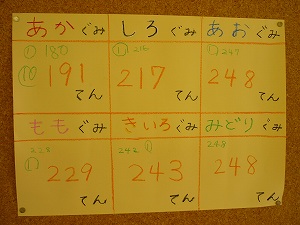 あかぐみ しろぐみ あおぐみ
① 180 ① 216 ① 247
⑩ 191 217 248
てん てん てん
ももぐみ きいろぐみ みどりぐみ
228 242 ① 248
① 229 243 248
てん てん てん